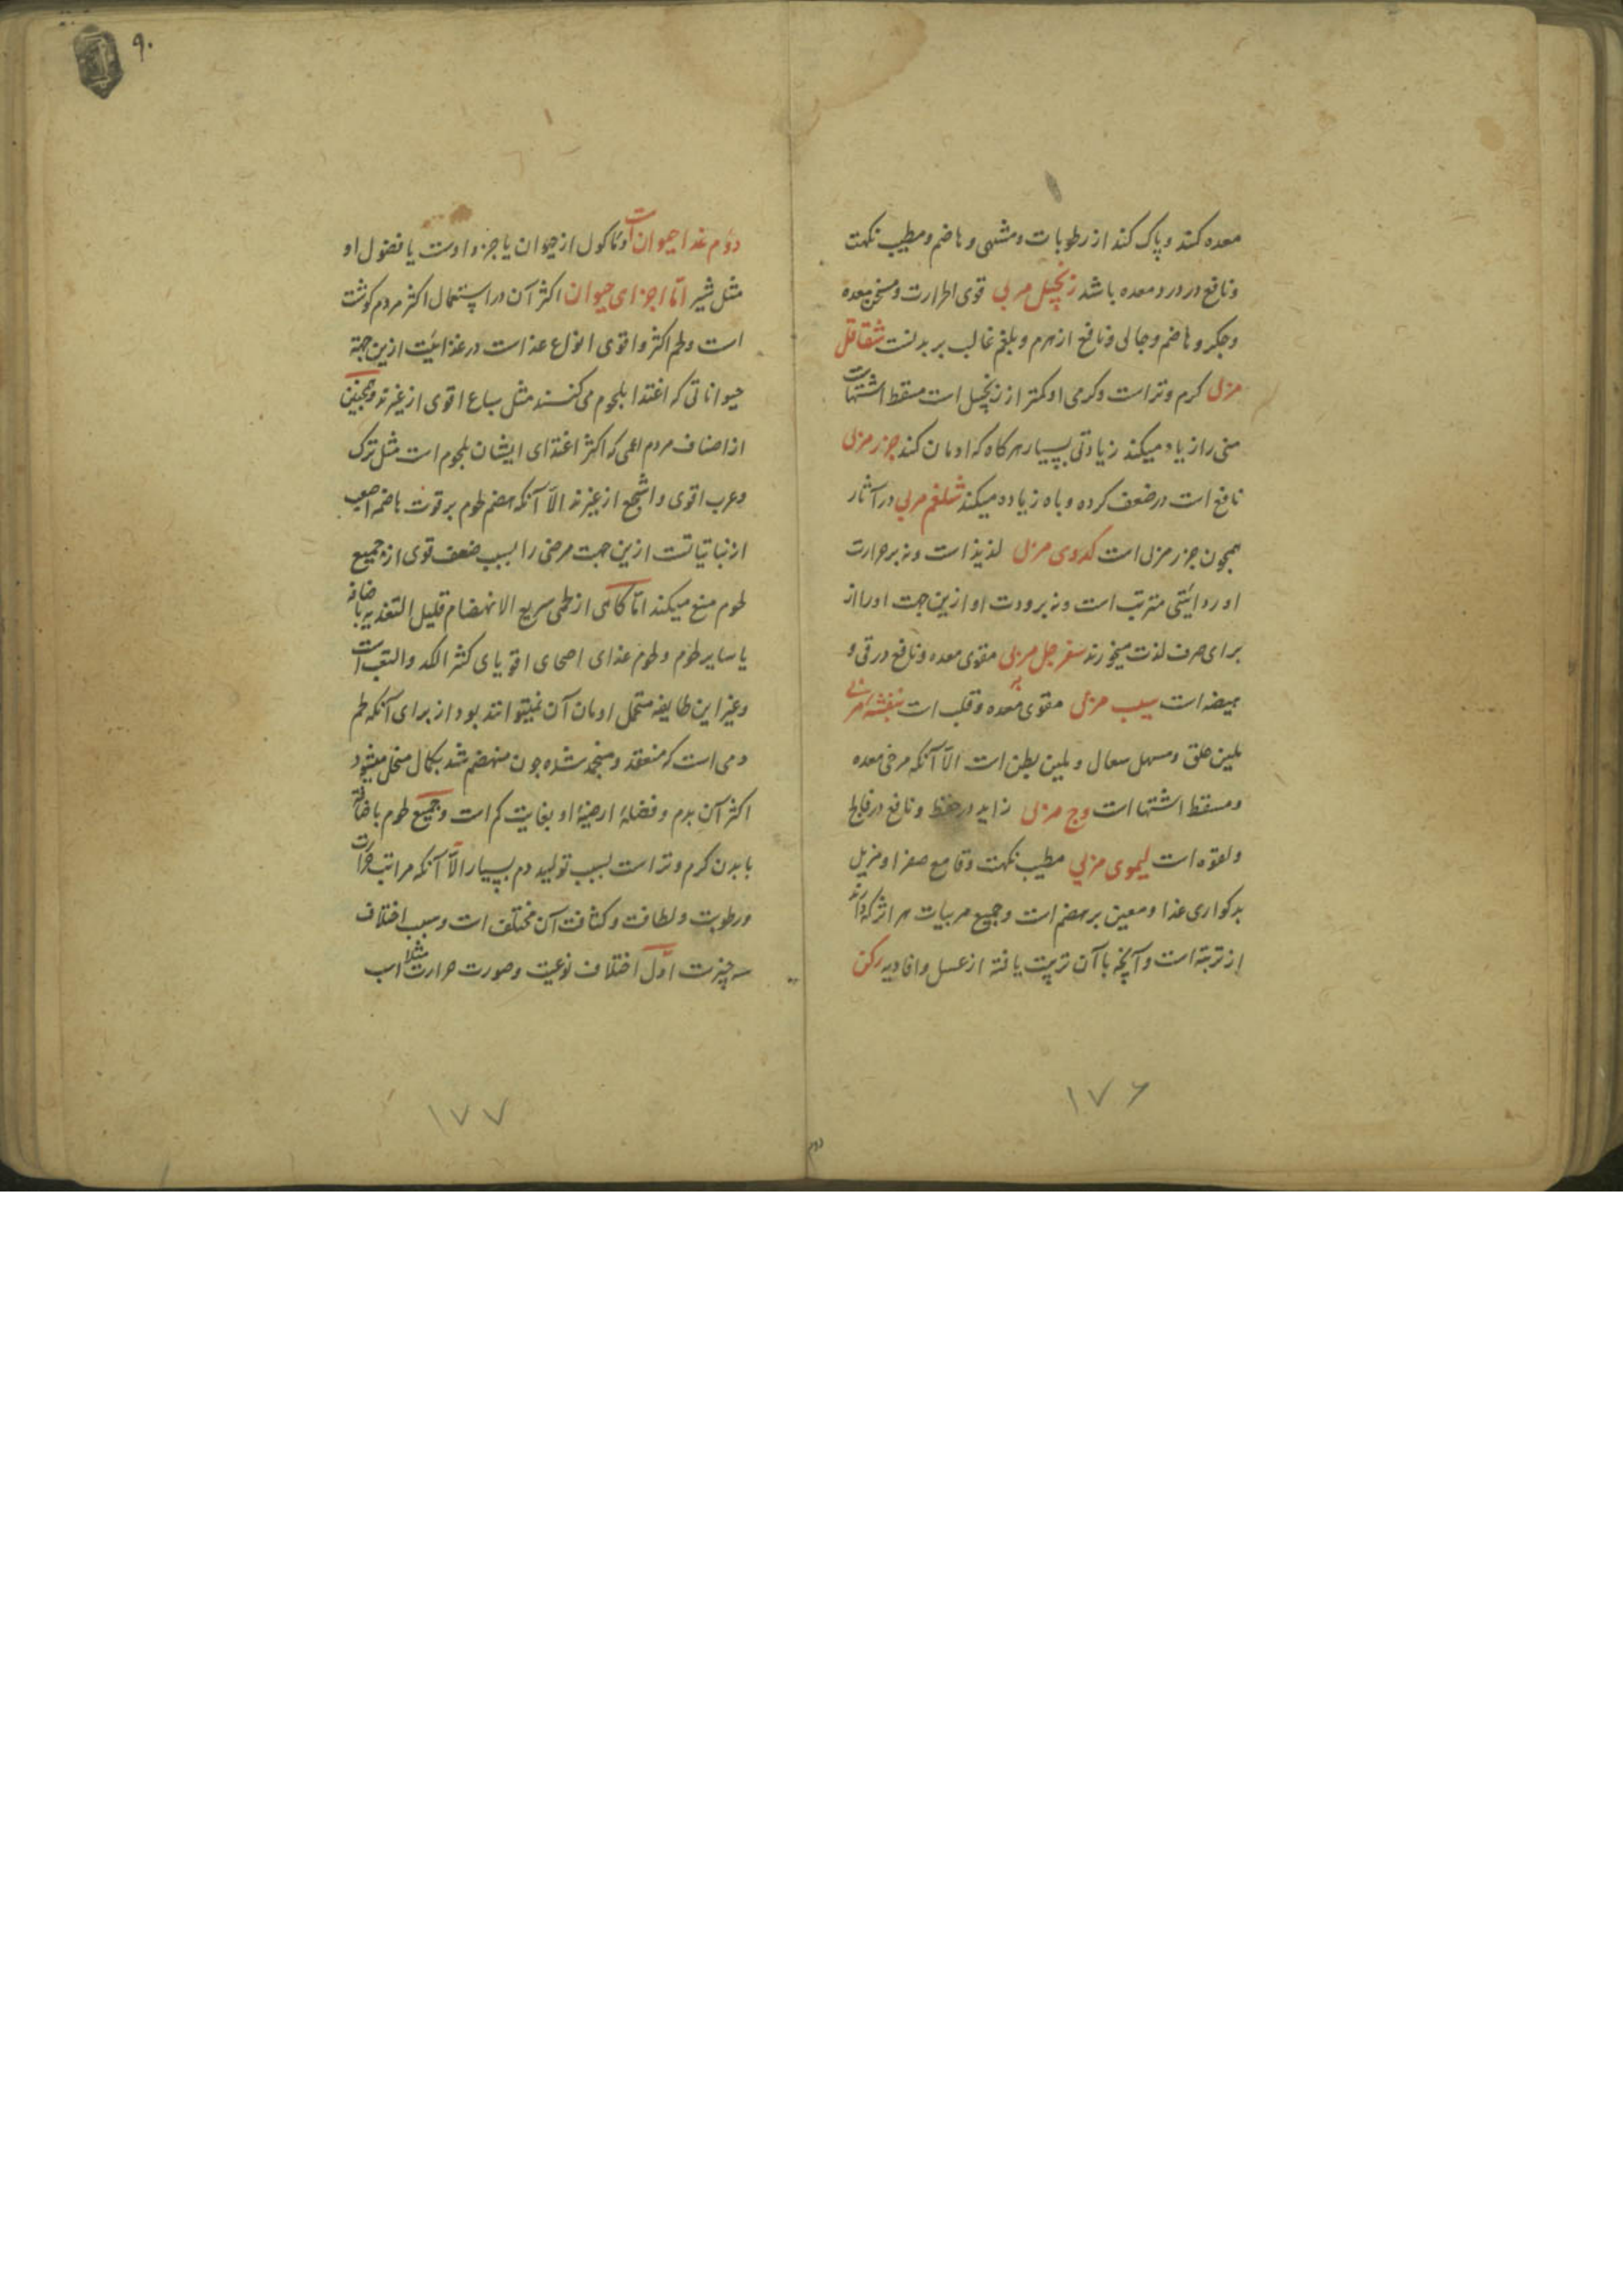 معده کند و پاک کند از رطوبات و مشهی و هاضم و مطیب نکهت
و نافع در درد معده باشد زنجبیل مربی قوی الحرارت و مسخن معده
و جگر و هاضم و جالی و نافع از هرم و بلغم غالب بر بدنست شقاقل
مربی کرم و تر است و کرمی او کمتر از زنجبیل است مسقط اشتهاست
منی را زیاد میکند زیادتی بسیار هرکاه که ادمان کند جزر مربی
نافع است در ضعف کرده و باه زیاده میکند شلغم مربی در آثار
همچون جزر مربی است کدوی مربی لذیذ است و نه بر حرارت
او روایتی مترتب است و نه برودت او ازین جهت او را از
برای صرف لذت میخورند سفرجل مربی مقوی معده و نافع در قی و
هیضه است سیب مربی مقوی معده و قلب است بنفشه مربی
ملین حلق و مسهل سعال و ملین بطن است الّا آنکه مرخی معده
و مسقط اشتها است وج مربی زاید در حفظ و نافع در فالج
و لقوه است لیموی مربی مطیب نکهت و قامع صفرا و مزیل
بدکواری غذا و معین بر هضم است و جمیع مربیات هر اثر که دارند
از تربته است و آنچه با آن تربیت یافته از عسل و افاویه رکن
۱۷۶
دوم
۹۰
دوّم غذا حیوان است و ماکول از حیوان یا جزو اوست یا فضول او
مثل شیر امّا اجزای حیوان اکثر آن در استعمال اکثر مردم کوشت
است و لحم اکثر و اقوی انواع غذاست در غذائیّت ازین جهة
حیواناتی که اغتذا بلحوم می کنند مثل سباع اقوی از غیرند و همچنین
از اصناف مردم اممی که اکثر اغتذای ایشان بلحوم است مثل ترک
و عرب اقوی و اشجع از غیرند الّا آنکه هضم لحوم بر قوت هاضمه اصعب
از نباتیاتست ازین جهت مرضی را بسبب ضعف قوی از جمیع
لحوم منع میکند امّا کاهی از لحمی سریع الانهضام قلیل التغذیه باضافه
با سایر لحوم و لحوم غذای اصحای اقویای کثیر الکد والتعب است
و غیر این طایفه متحمل ادمان آن نمیتوانند بود از برای آنکه لحم
دمی است که منعقد و منجمد شده چون منهضم شد بکمال منحل میشود
اکثر آن بدم و فضلهٔ ارضیهٔ او بغایت کم است و جمیع لحوم باضافه
با بدن کرم و تر است بسبب تولید دم بسیار الّا آنکه مراتب حرارت
و رطوبت و لطافت و کثافت آن مختلف است و سبب اختلاف
سه چیزست اوّل اختلاف نوعیت و صورت مثلا حرارت اسب
۱۷۷